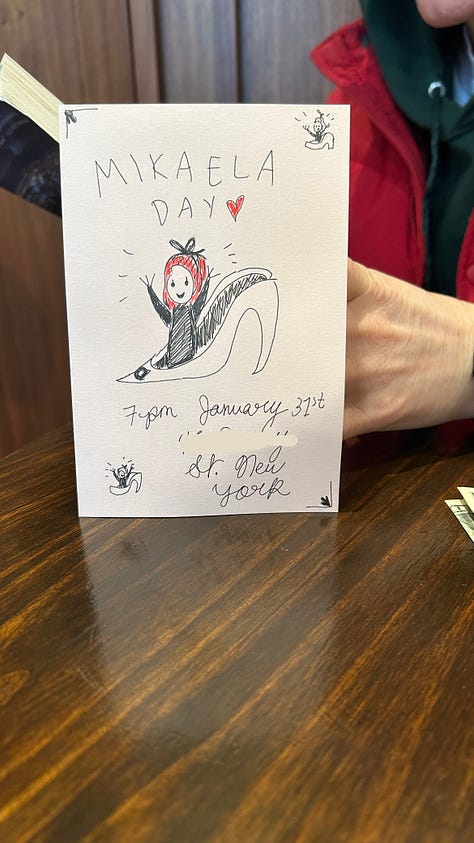 MIKAELA
DAY
7pm January 31st
St. New
York